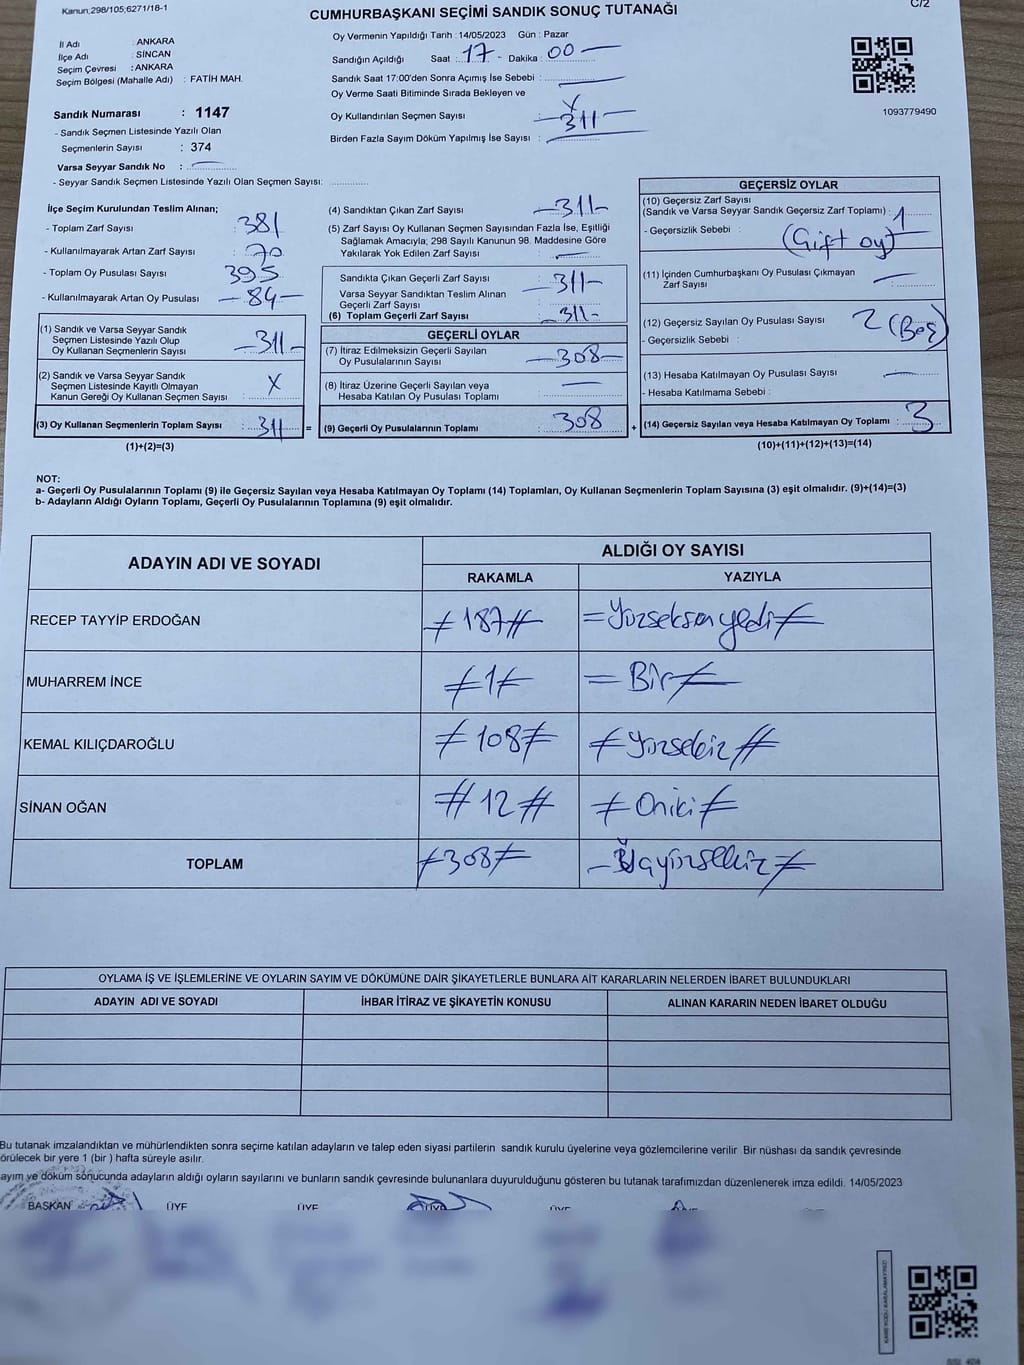 Kanun;298/105;6271/18-1
C/2
CUMHURBAŞKANI SEÇİMİ SANDIK SONUÇ TUTANAĞI
İl Adı : ANKARA
İlçe Adı : SİNCAN
Seçim Çevresi : ANKARA
Seçim Bölgesi (Mahalle Adı) : FATİH MAH.
Sandık Numarası : 1147
- Sandık Seçmen Listesinde Yazılı Olan
Seçmenlerin Sayısı : 374
Varsa Seyyar Sandık No :
- Seyyar Sandık Seçmen Listesinde Yazılı Olan Seçmen Sayısı:
Oy Vermenin Yapıldığı Tarih : 14/05/2023 Gün : Pazar
Sandığın Açıldığı Saat : 17 - Dakika : 00
Sandık Saat 17:00'den Sonra Açımış İse Sebebi :
Oy Verme Saati Bitiminde Sırada Bekleyen ve
Oy Kullandırılan Seçmen Sayısı : 311
Birden Fazla Sayım Döküm Yapılmış İse Sayısı :
1093779490
İlçe Seçim Kurulundan Teslim Alınan;
- Toplam Zarf Sayısı : 381
- Kullanılmayarak Artan Zarf Sayısı : 70
- Toplam Oy Pusulası Sayısı 395
- Kullanılmayarak Artan Oy Pusulası - 84 -
(1) Sandık ve Varsa Seyyar Sandık
Seçmen Listesinde Yazılı Olup
Oy Kullanan Seçmenlerin Sayısı - 311 -
(2) Sandık ve Varsa Seyyar Sandık
Seçmen Listesinde Kayıtlı Olmayan
Kanun Gereği Oy Kullanan Seçmen Sayısı : X
(3) Oy Kullanan Seçmenlerin Toplam Sayısı : 311 =
(1)+(2)=(3)
(4) Sandıktan Çıkan Zarf Sayısı - 311 -
(5) Zarf Sayısı Oy Kullanan Seçmen Sayısından Fazla İse, Eşitliği
Sağlamak Amacıyla; 298 Sayılı Kanunun 98. Maddesine Göre
Yakılarak Yok Edilen Zarf Sayısı :
Sandıkta Çıkan Geçerli Zarf Sayısı - 311 -
Varsa Seyyar Sandıktan Teslim Alınan
Geçerli Zarf Sayısı
(6) Toplam Geçerli Zarf Sayısı : - 311 -
GEÇERLİ OYLAR
(7) İtiraz Edilmeksizin Geçerli Sayılan
Oy Pusulalarının Sayısı - 308 -
(8) İtiraz Üzerine Geçerli Sayılan veya
Hesaba Katılan Oy Pusulası Toplamı
(9) Geçerli Oy Pusulalarının Toplamı 308 +
GEÇERSİZ OYLAR
(10) Geçersiz Zarf Sayısı
(Sandık ve Varsa Seyyar Sandık Geçersiz Zarf Toplamı) : 1
- Geçersizlik Sebebi : (Gift oy)
(11) İçinden Cumhurbaşkanı Oy Pusulası Çıkmayan
Zarf Sayısı :
(12) Geçersiz Sayılan Oy Pusulası Sayısı 2 (Boş)
- Geçersizlik Sebebi :
(13) Hesaba Katılmayan Oy Pusulası Sayısı
- Hesaba Katılmama Sebebi :
(14) Geçersiz Sayılan veya Hesaba Katılmayan Oy Toplamı : 3
(10)+(11)+(12)+(13)=(14)
NOT:
a- Geçerli Oy Pusulalarının Toplamı (9) ile Geçersiz Sayılan veya Hesaba Katılmayan Oy Toplamı (14) Toplamları, Oy Kullanan Seçmenlerin Toplam Sayısına (3) eşit olmalıdır. (9)+(14)=(3)
b- Adayların Aldığı Oyların Toplamı, Geçerli Oy Pusulalarının Toplamına (9) eşit olmalıdır.
ADAYIN ADI VE SOYADI
ALDIĞI OY SAYISI
RAKAMLA YAZIYLA
RECEP TAYYİP ERDOĞAN 187 Yüzseksenyedi
MUHARREM İNCE 1 Bir
KEMAL KILIÇDAROĞLU 108 Yüzsekiz
SİNAN OĞAN 12 Oniki
TOPLAM 308 Üçyüzsekiz
OYLAMA İŞ VE İŞLEMLERİNE VE OYLARIN SAYIM VE DÖKÜMÜNE DAİR ŞİKAYETLERLE BUNLARA AİT KARARLARIN NELERDEN İBARET BULUNDUKLARI
ADAYIN ADI VE SOYADI İHBAR İTİRAZ VE ŞİKAYETİN KONUSU ALINAN KARARIN NEDEN İBARET OLDUĞU
Bu tutanak imzalandıktan ve mühürlendikten sonra seçime katılan adayların ve talep eden siyasi partilerin sandık kurulu üyelerine veya gözlemcilerine verilir Bir nüshası da sandık çevresinde
örülecek bir yere 1 (bir ) hafta süreyle asılır.
ayım ve döküm sonucunda adayların aldığı oyların sayılarını ve bunların sandık çevresinde bulunanlara duyurulduğunu gösteren bu tutanak tarafımızdan düzenlenerek imza edildi. 14/05/2023
BAŞKAN ÜYE ÜYE ÜYE ÜYE